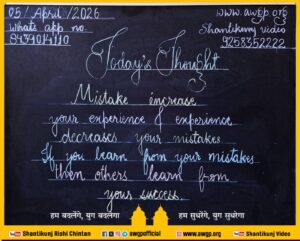 05/April/2026
www.awgp.org
Whats app no.
Shantikunj video
9258352222
Today's Thought
Mistake increase
your experience & experience
decreases your mistakes.
If you learn from your mistakes
then others learn from
your success.
हम बदलेंगे, युग बदलेगा
हम सुधरेंगे, युग सुधरेगा
Shantikunj Rishi Chintan
awgpofficial
www.awgp.org
Shantikunj Video